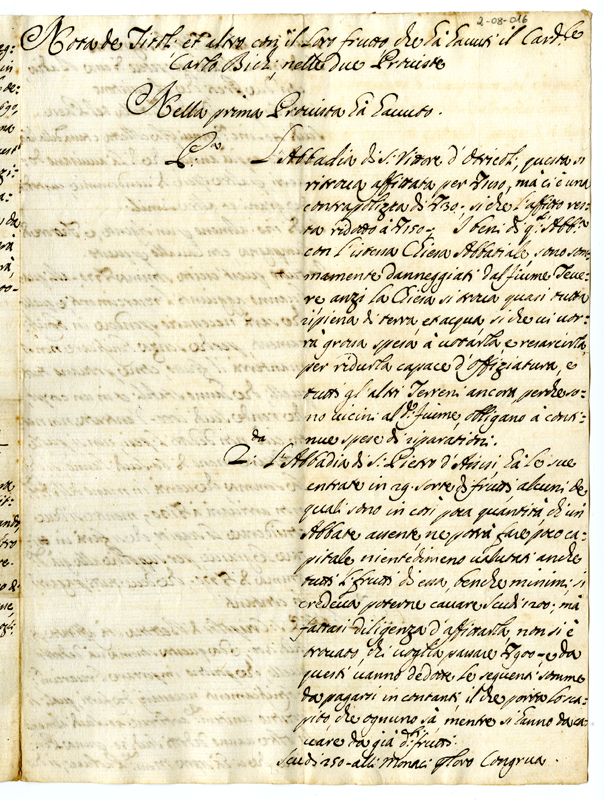 2-08-016
Nota de Titoli et altro con il loro frutto che hà havuti il Card.le
Carlo Bichi nelle due Proviste
Nella prima Provista hà havuto.
P.a L'Abbadia di S. Vittore d'Otricoli, questa si
ritrova affittata per mà ci è una
contrapolizza di 30. si che l'affitto res-
ta ridotto à 150. I beni di q.a Abb.a
con l'istessa Chiesa Abbatiale, sono som-
mamente danneggiati dal fiume Teve-
re anzi la Chiesa si trova quasi tutta
ripiena di terra, et acqua, si che ci vor-
rà grossa spesa à votarla e resarcirla,
per ridurla capace d'Offiziatura, e
tutti gl'altri Terreni ancora perche so-
no vicini al d.o fiume, obligano à conti-
nue spese di riparationi.
2.da L'Abbadia di S. Pietro d'Assisi, hà le sue
entrate in 29. sorte di frutti alcuni de
quali sono in così poca quantità che un
Abbate assente ne potrà fare poco ca-
pitale, nientedimeno valutati anche
tutti li frutti di essa, benche minimi, si
credeva poterne cavare scudi 1200: mà
fattasi diligenza d'affittarla, non si è
trovato, chi voglia passare 900 - e da
questi vanno dedotte le seguenti somme
da pagarsi in contanti il che porta lo sca-
pito che ognuno sà, mentre si hanno da ca-
vare da già d.i frutti.
Scudi 250 - alli Monaci p loro Congrua.